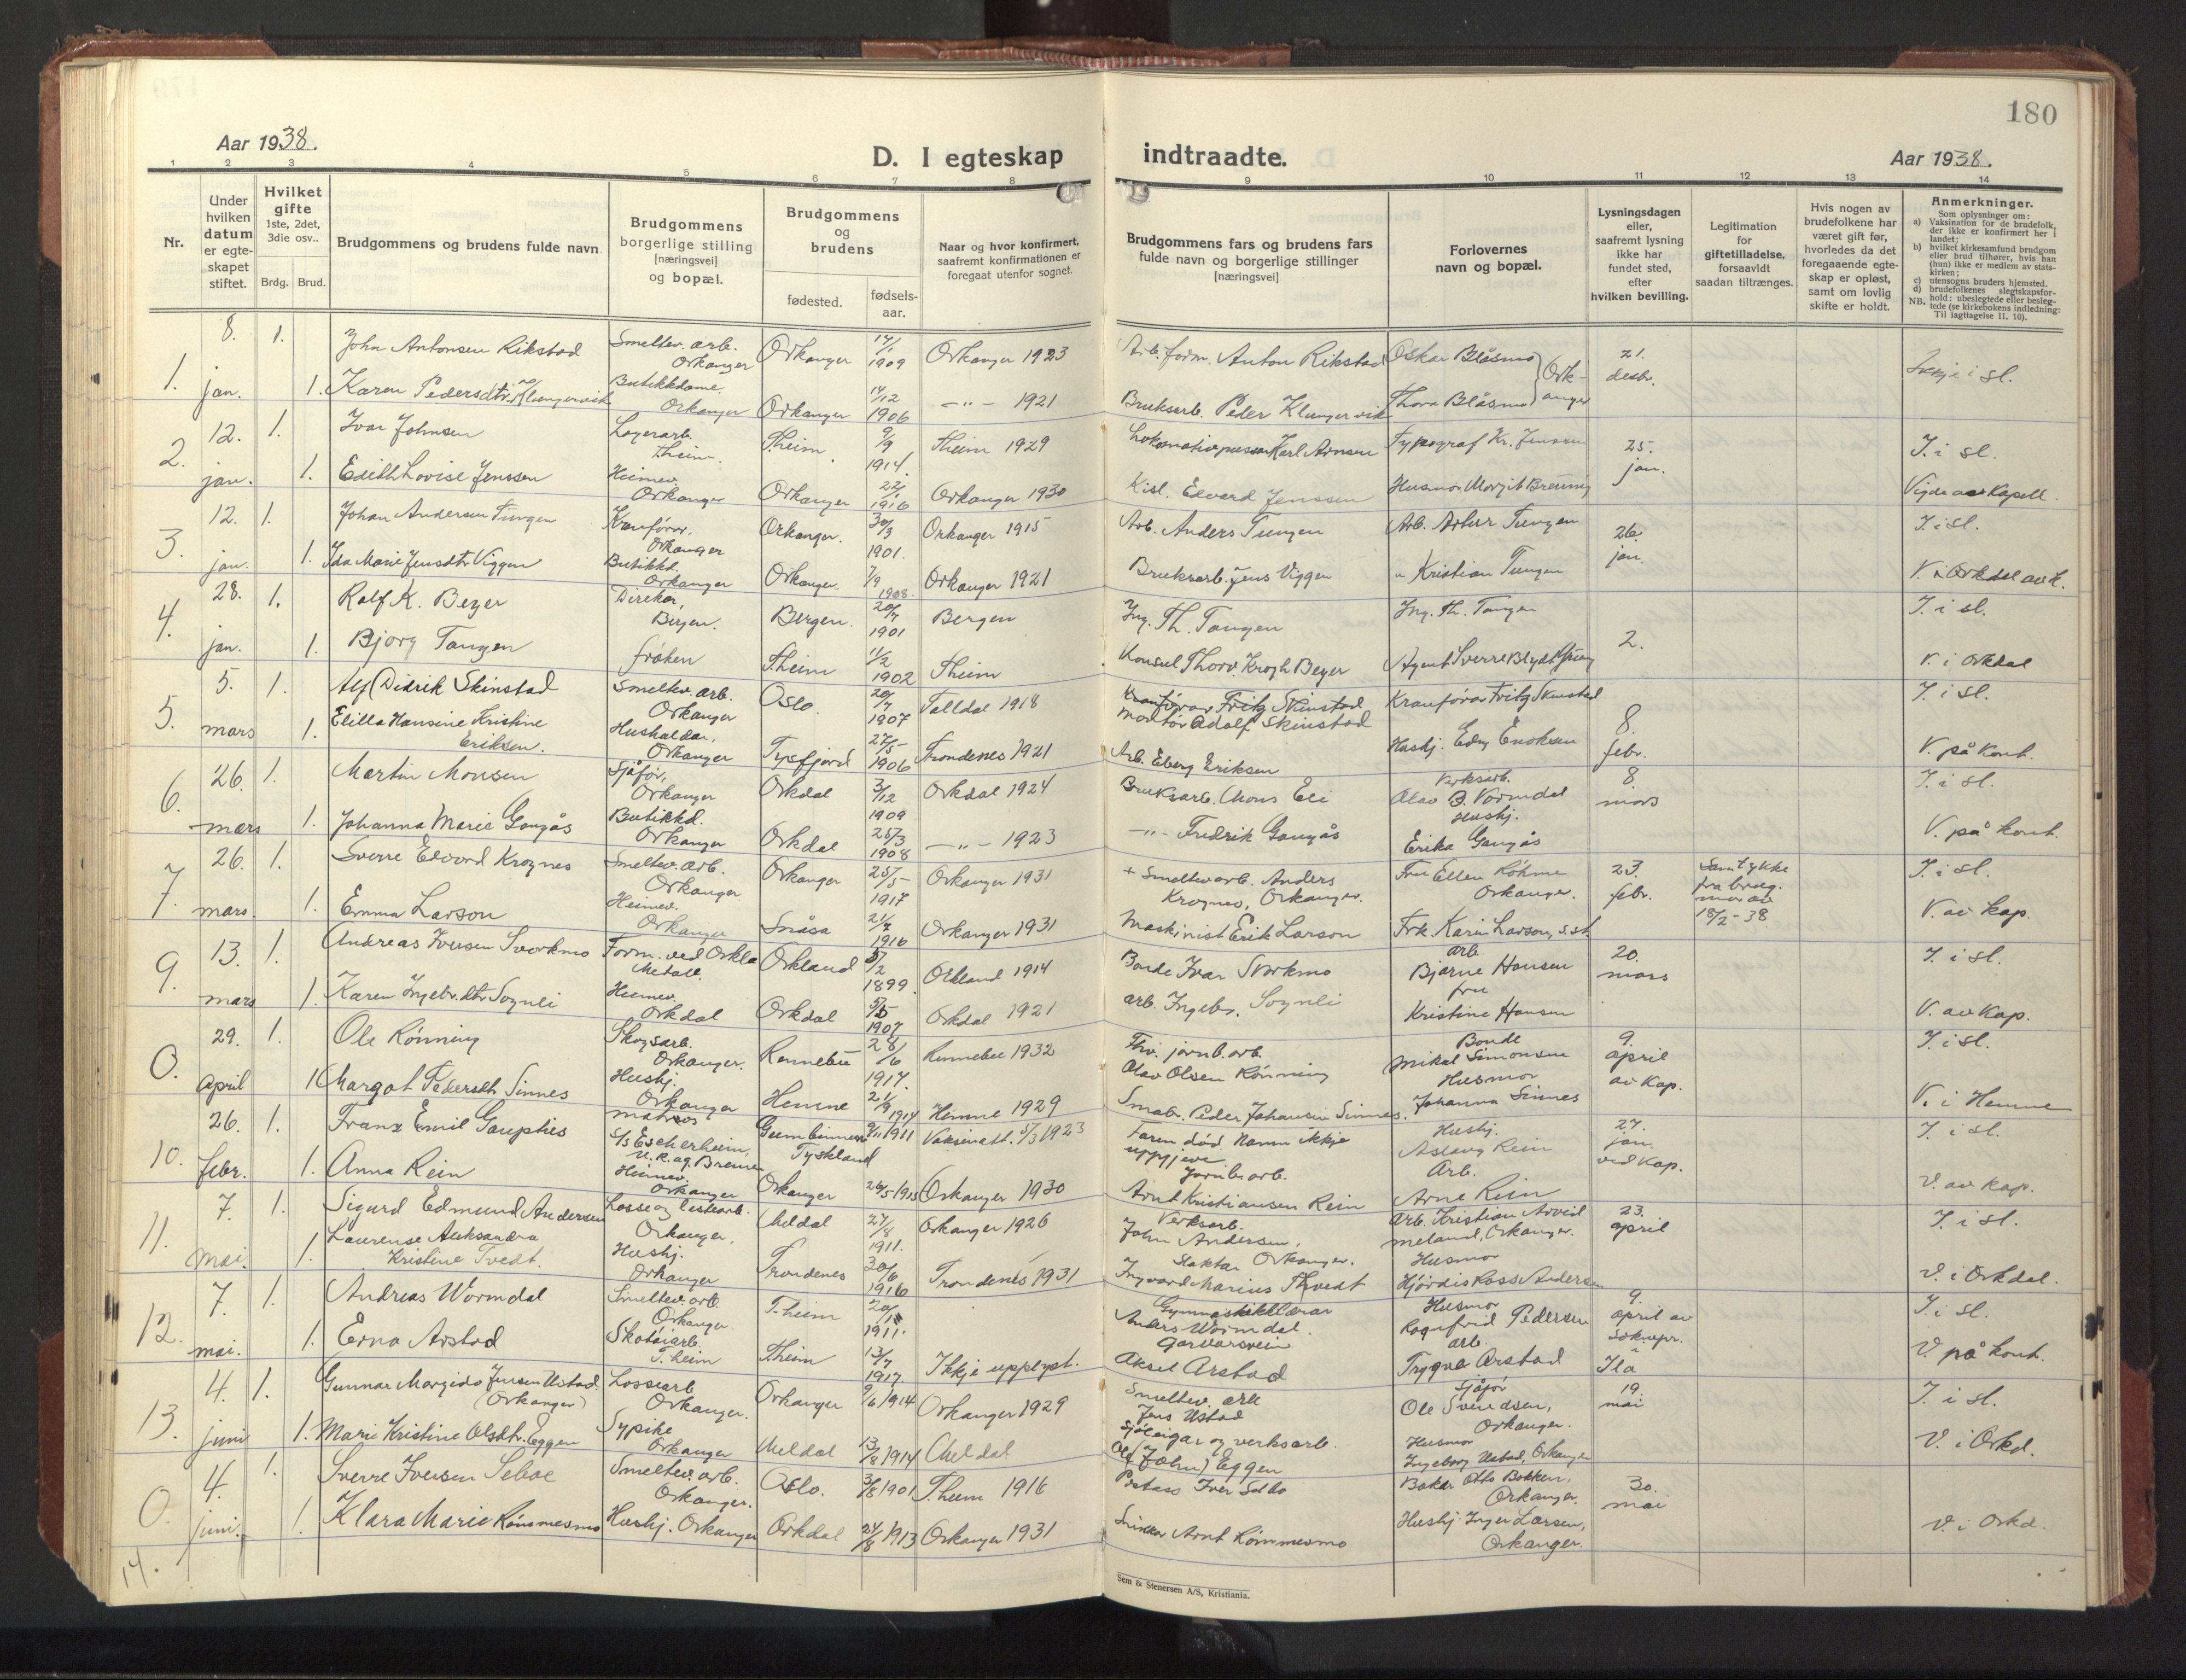 180
Aar 1938.
D. I egteskap indtraadte.
Aar 1938.
1 2 3 4 5 6 7 8 9 10 11 12 13 14
Nr.
Under hvilken datum er egte-skapet stiftet.
Hvilket gifte 1ste, 2det, 3die osv..
Brdg. Brud.
Brudgommens og brudens fulde navn.
Brudgommens borgerlige stilling [næringsvei] og bopæl.
Brudgommens og brudens
fødested.
fødsels-aar.
Naar og hvor konfirmert, saafremt konfirmationen er foregaat utenfor sognet.
Brudgommens fars og brudens fars fulde navn og borgerlige stillinger [næringsvei]
Forlovernes navn og bopæl.
Lysningsdagen eller, saafremt lysning ikke har fundet sted, efter hvilken bevilling.
Legitimation for giftetilladelse, forsaavidt saadan tiltrænges.
Hvis nogen av brudefolkene har været gift før, hvorledes da det foregaaende egte-skap er opløst, samt om lovlig skifte er holdt.
Anmerkninger.
Som oplysninger om:
a) Vaksination for de brudefolk, der ikke er konfirmert her i landet;
b) hvilket kirkesamfund brudgom eller brud tilhører, hvis han (hun) ikke er medlem av stats-kirken;
c) utensogns bruders hjemsted.
d) brudefolkenes slegtskapsfor-hold: ubeslegtede eller besleg-tede (se kirkebokens indledning: Til iagttagelse II, 10).
NB.
1. 8. jan. 1. John Antonsen Rikstad Smeltev. arb. Orkanger Orkanger 1909 Orkanger 1923 Arb. form. Anton Rikstad Oskar Blåsmo 21. desbr. i sl.
1. Karen Pedersdtr. Klungervik Butikkdame Orkanger Orkanger 14/12 1906 —"— 1921 Bruksarb. Peder Klungervik Thora Blåsmo } Orkanger
2. 12. jan. 1. Ivar Johnsen Lagerarb. Theim T.heim 9/9 1914. Theim 1929 Karl Arnsen Typograf Kr. Jenssen 25. jan. I. i sl.
1. Edith Lovise Jenssen Heimev. Orkanger Orkanger 22/1 1916 Orkanger 1930 Edvard Jenssen Husmor Margit Kapell.
3. 12. jan. 1. Johan Andersen Tungen Kranførar, Orkanger Orkanger. 30/3 1901. Orkanger 1915 Arb. Anders Tungen Arb. Artur Tungen 26. jan. I. i sl.
1. Ida Marie Jensdtr Viggen Butikkd. Orkanger Orkanger 7/9 1908. Orkanger 1921 Bruksarb. Jens Viggen " Kristian Tungen V. i Orkdal av k.
4. 28. jan. 1. Rolf K. Beyer Direktør, Bergen. Bergen. 20/7 1901 Bergen Ing. Th. Tangen Ing. Th. Tangen 2. I. i sl.
1. Bjorg Tangen frøken T.heim 11/2 1902 Theim Konsul Thorv. Krogh Beyer Agent Sverre V. i Orkdal
5. 5. mars 1. Alf Didrik Skinstad Smeltev. arb. Orkanger Oslo. 20/7 1907 1918 Kranførar Fritz Skinstad Montør Adolf Skinstad Kranførar Fritz Skinstad 8. febr. I. i sl.
1. Elilla Hansine Kristine Eriksen. Hushaldar, Orkanger Tysfjord 27/5 1906 Trondenes 1921 Arb. Eberg Eriksen Hushj. Edny Enoksen V. på kont.
6. 26. mars 1. Martin Monsen Sjåfør, Orkanger Orkdal 3/12 1909 Orkdal 1924 Bruksarb. Mons Eli Verksarb. Olav B. Vormdal 8. mars I. i sl.
1. Johanna Marie Gangås Butikkd. Orkanger Orkdal 25/3 1908 —"— 1923 —"— Fredrik Gangås Hushj. Erika Gangås V. på kont.
7. 26. mars. 1. Sverre Edvard Krognes Smeltev. arb. Orkanger Orkanger 25/5 1917 Orkanger 1931 + Smeltevarb. Anders Krognes, Orkanger. Fru Ellen Røhme Orkanger. 23. febr. Samtykke fra brudg. mor av 18/2 - 38 I. i sl.
1. Emma Larson Heimev. Orkanger Snåsa 21/7 1916 Orkanger 1931 Maskinist Erik Larson Frk. Karin Larson, s.st. V. av kap.
9. 13. mars 1. Andreas Iversen Svorkmo Form. ved Orkla Metall. Orkland 1899. Orkland 1914 Bonde Ivar Svorkmo arb. Bjarne Hansen 20. mars I. i sl.
1. Karen Ingebr.dtr Sognli Heimev. Orkdal Orkdal 1907 Orkdal 1921 arb. Ingebr. Sognli fru Kristine Hansen V. av Kap.
0. 29. april 1. Ole Rønning Skogsarb. Orkanger. Rennebu 28/6 1917. Rennebu 1932 Fhv. jarnb.arb. Olav Olsen Rønning Bonde Mikal Simonsen 9. april av Kap. I. i sl.
1 Margot Pedersdtr. Sinnes Hushj. Orkanger Hemne 21/9 1914 Hemne 1929 Småbr. Peder Johansen Sinnes. Husmor Johanna Sinnes V. i Hemne
10. 26. febr. 1. Franz Emil Gauptus matros S/S Escherheim, Bremen Gumbinnen Tyskland 9/11 1911 Vaksinatt. 5/3 1923 Faren død Namn ikkje uppgjeve Hushj. Aslaug Rein 27. jan. ved kap. I. i sl.
1. Anna Rein Heimev. Orkanger Orkanger 26/5 1915 Orkanger 1930 Jarnb.arb. Arnt Kristiansen Rein Arb. Arne Rein V. av kap.
11. 7. mai. 1. Sigurd Edmund Andersen Losse og lastearb. Orkanger, Meldal 27/8 1911. Orkanger 1926 Verksarb. John Andersen, Orkanger. arb. Kristian Arvid Meland, Orkanger. 23. april I. i sl.
1. Laurense Aleksandra Kristine Tvedt. Hushj. Orkanger Trondenes 30/6 1916 Trondenes 1931 Slaktar Ingvard Marius Thvedt Husmor Hjørdis Ross Andersen V. i Orkdal.
12. 7. mai. 1. Andreas Wormdal Smeltev. arb. Orkanger T.heim 1911. Gymnastikklærar Anders Wormdal. Husmor Ragnfrid Pedersen 9. april av sokupr. Ila I. i sl.
1. Erna Arstad Skotøiarb. T.heim T.heim 13/7 1917 Ikkje upplyst. Garvarsvein Aksel Arstad arb. Trygve Arstad V. på kont.
13. 4. juni 1. Gunnar Margido Jensen Ustad (Orkanger) Lossearb Orkanger. Orkanger 9/6 1914 Orkanger 1929 Smeltev. arb Jens Ustad Sjåfør Ole Svendsen, Orkanger. 19. mai I. i sl.
1. Marie Kristine Olsdtr. Eggen Sypike Orkanger Meldal 13/8 1914 Meldal Sjøleigar og verksarb. Ole (John) Eggen Husmor Ingeborg Ustad, Orkanger V. i Orkd.
0. 4. juni. 1. Sverre Iversen Selboe Smeltev. arb. Orkanger. Oslo. 3/8 1901 T.heim 1916 Iver Selbo Bakar Otto Bakken, Orkanger. 30. mai
1. Klara Marie Rønsmesmo Hushj. Orkanger Orkdal 24/8 1913 Orkanger 1931 Snikkar Arnt Rømmesmo Hushj. Inger Larsen, Orkanger. V. i Orkd.
14.
Sem & Stenersen A/S, Kristiania.